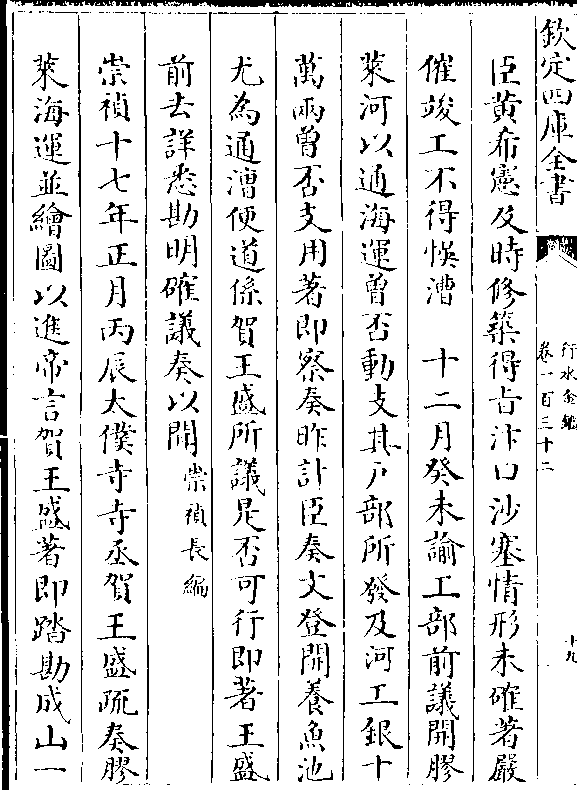 欽定四庫全書
行水金鑑
卷一百三十二
十九
臣黄希憲及時修築得㫖汴口沙塞情形未確著嚴
催竣工不得悞漕　十二月癸未諭工部前議開膠
萊河以通海運曾否動支其户部所發及河工銀十
萬兩曾否支用著即察奏昨計臣奏文登開養魚池
尤為通漕便道係賀王盛所議是否可行即著王盛
前去詳悉勘明確議奏以聞崇禎長編
崇禎十七年正月丙辰太僕寺寺丞賀王盛疏奏膠
萊海運並繪圖以進帝言賀王盛著即踏勘成山一